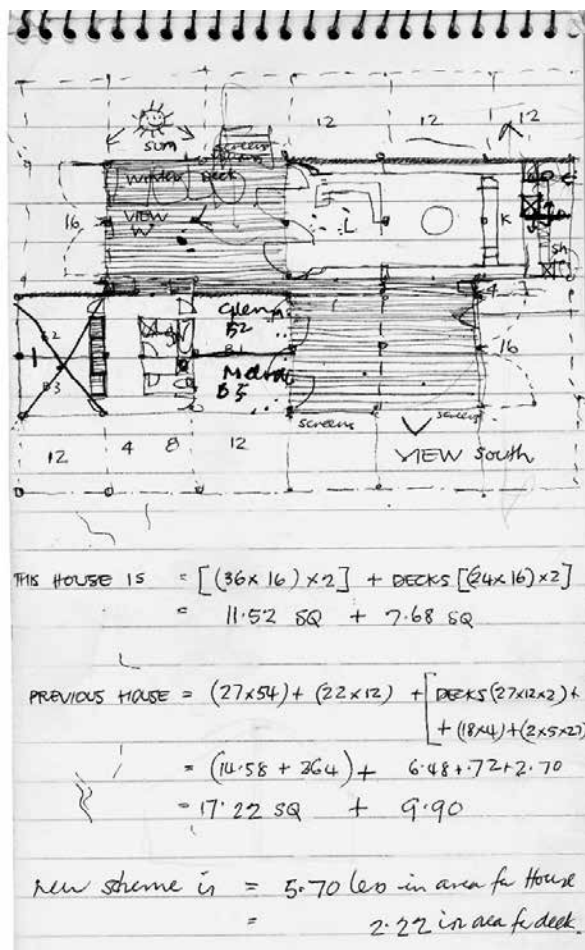 12 12 12
sun
screens
Winter Deck
VIEW
W
16 L K
Sh
4
Glenn
B2
B2 B1 16
B3
B5
screens screens
12 4 8 12 VIEW South
THIS HOUSE IS = [(36 x 16) x 2] + DECKS [(24 x 16) x 2]
= 11.52 SQ + 7.68 SQ
PREVIOUS HOUSE = (27 x 54) + (22 x 12) + [DECKS (27 x 12 x 2) +
+ (18 x 4) + (2 x 5 x 27)
= (14.58 + 264) + 6.48 + .72 + 2.70
= 17.22 SQ + 9.90
new scheme is = 5.70 less in area for House
= 2.22 in area for deck.